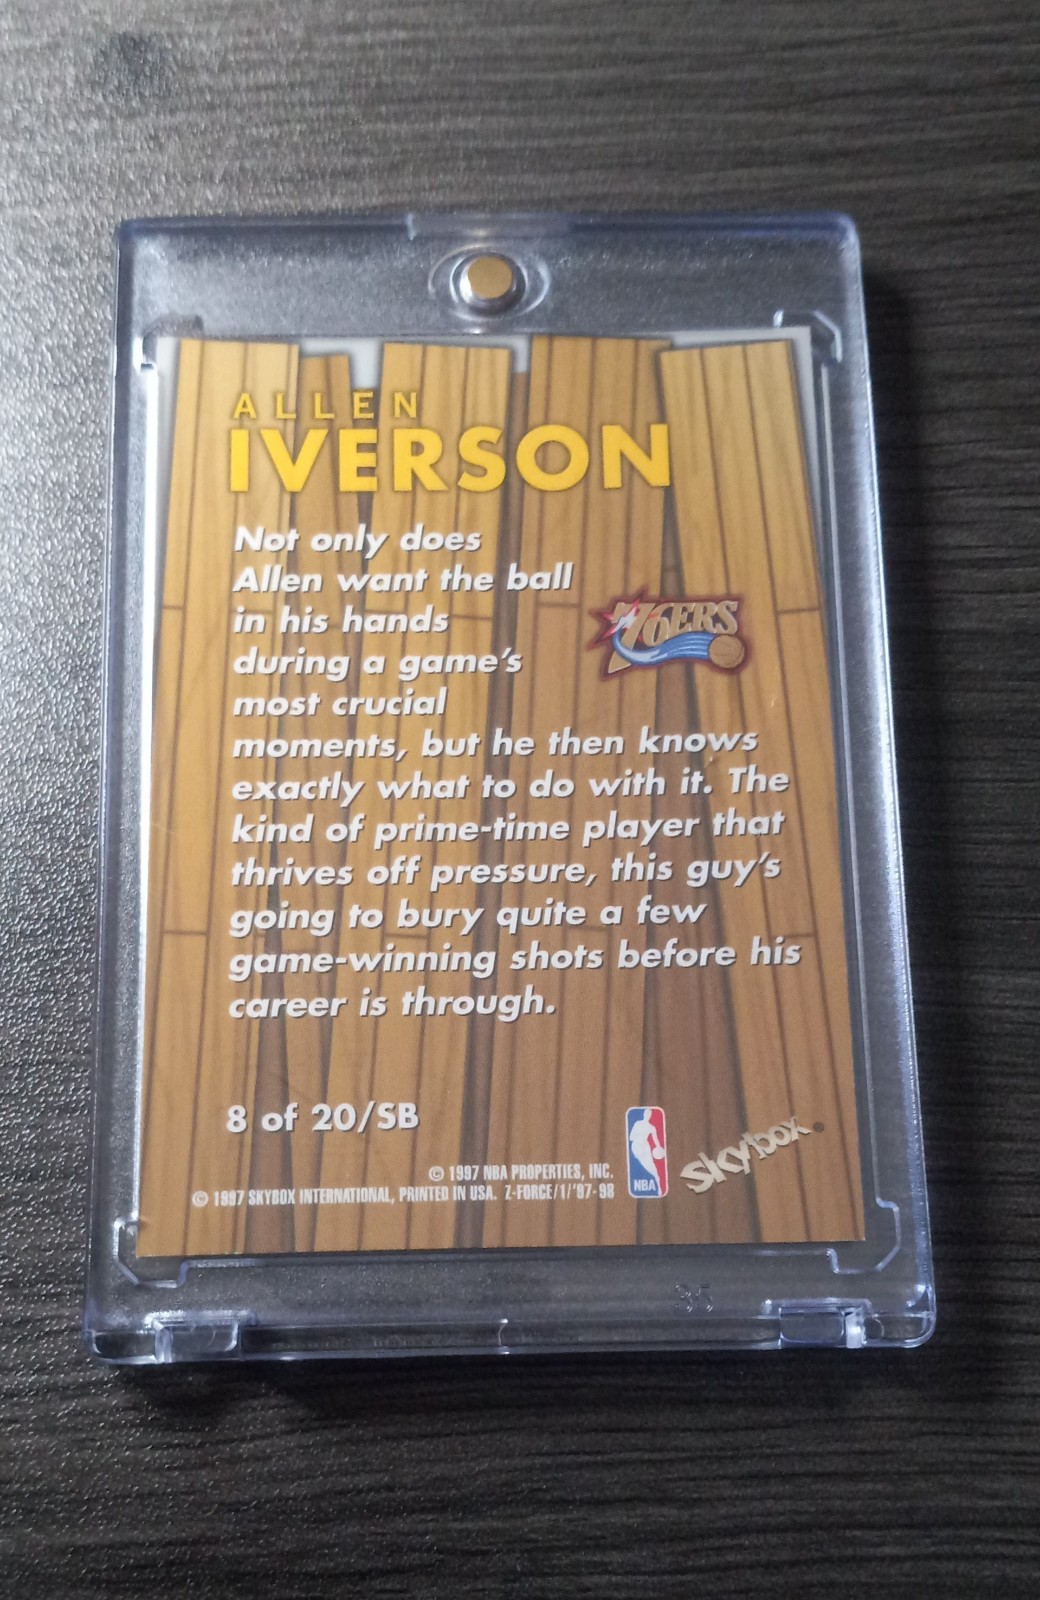 ALLEN
IVERSON
Not only does
Allen want the ball
in his hands
during a game's
most crucial
moments, but he then knows
exactly what to do with it. The
kind of prime-time player that
thrives off pressure, this guy's
going to bury quite a few
game-winning shots before his
career is through.
76ERS
8 of 20/SB
© 1997 NBA PROPERTIES, INC.
© 1997 SKYBOX INTERNATIONAL, PRINTED IN USA. Z-FORCE/1/'97-98
NBA
Skybox®
35